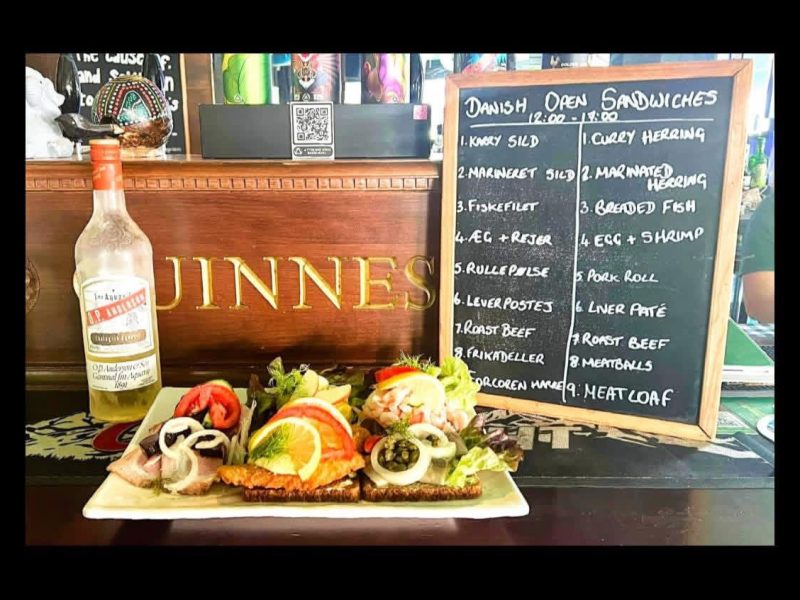 DANISH OPEN SANDWICHES
12:00 - 18:00
1. KARRY SILD
2. MARINERET SILD
3. FISKEFILET
4. ÆG + REJER
5. RULLEPØLSE
6. LEVERPOSTEJ
7. ROAST BEEF
8. FRIKADELLER
1. CURRY HERRING
2. MARINATED
HERRING
3. BREADED FISH
4. EGG + SHRIMP
5. PORK ROLL
6. LIVER PATÉ
7. ROAST BEEF
8. MEATBALLS
9. MEATLOAF
UINNES
O.P. ANDERSON
O.P. Anderson & Son
1891